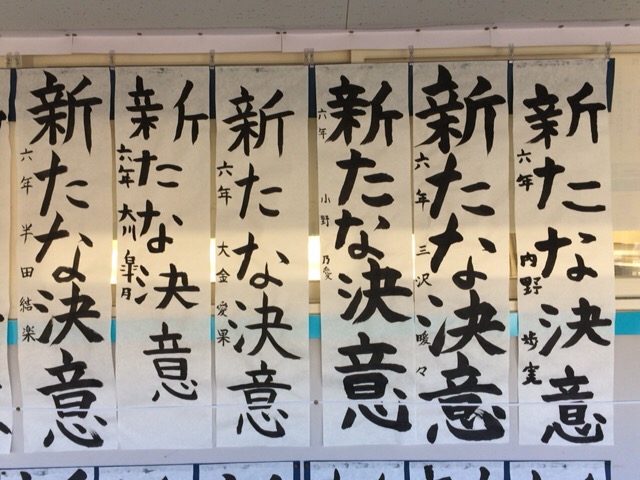 新たな決意
六年 内野 歩実
新たな決意
六年 三沢 暖々
新たな決意
六年 小野 乃愛
新たな決意
六年 大金 愛果
新たな決意
六年 大川 皐月
新たな決意
六年 半田 結楽